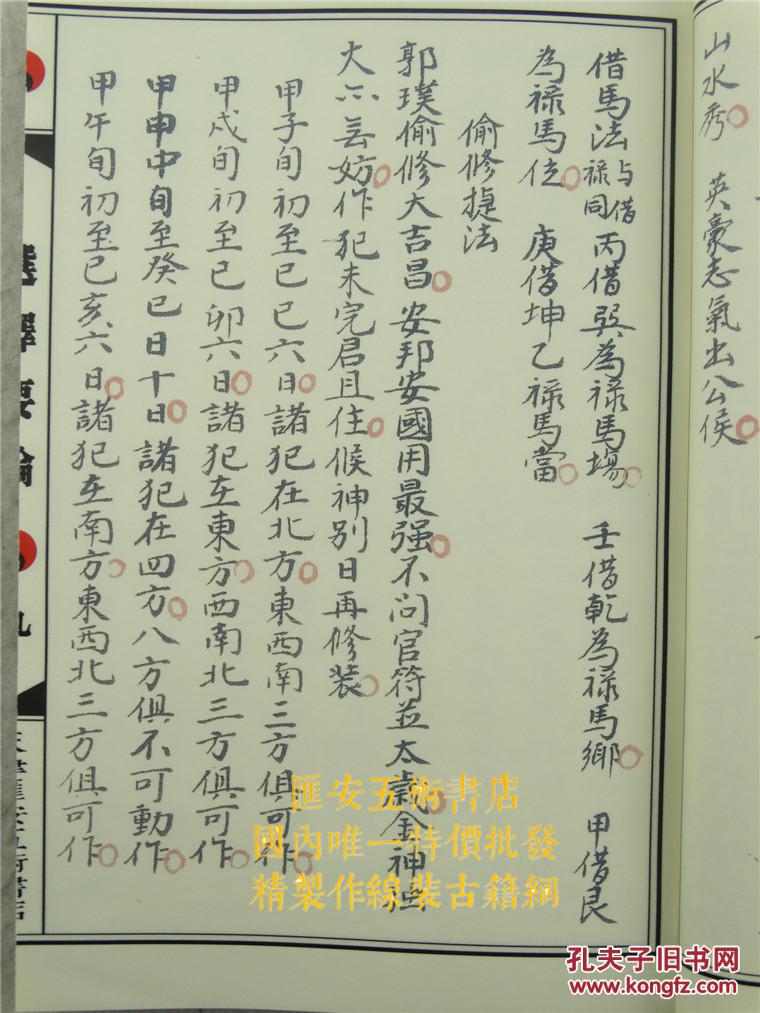 山水秀 英豪志氣出公侯
借馬法與借祿同 丙借巽為祿馬場 壬借乾為祿馬鄉 甲借艮
為祿馬位 庚借坤乙祿馬當
偷修捷法
郭璞偷修大吉昌 安邦安國用最强 不问官符並太歲 金神
火亦无妨 作犯未完君且住 候神别日再修装
甲子旬初至己巳六日 諸犯在北方 東西南三方俱可作
甲戍旬初至己卯六日 諸犯在東方 西南北三方俱可作
甲申中旬至癸巳日十日 諸犯在四方 八方俱不可動作
甲午旬初至己亥六日 諸犯在南方 東西北三方俱可作
選擇要論
九
匯安五術書店
國內唯一特價批發
精製作線装古籍網
孔夫子旧书网
www.kongfz.com